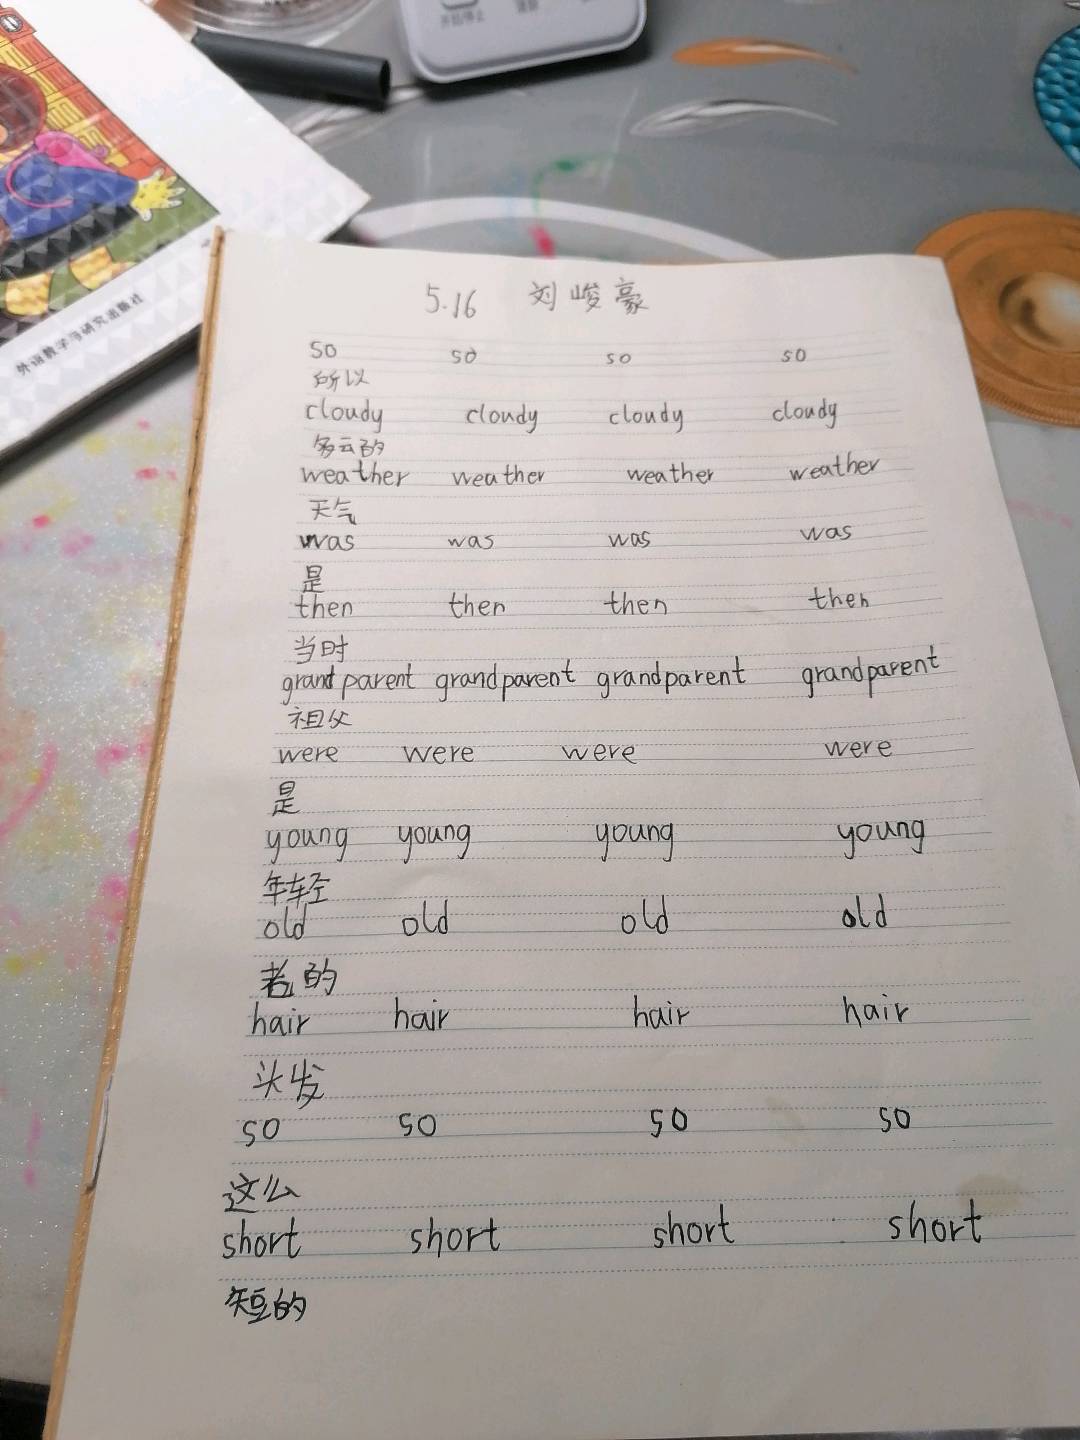 外语教学与研究出版社
5.16 刘峻豪
so so so so
所以
cloudy cloudy cloudy cloudy
多云的
weather weather weather weather
天气
was was was was
是
then then then then
当时
grandparent grandparent grandparent grandparent
祖父
were were were were
是
young young young young
年轻
old old old old
老的
hair hair hair hair
头发
so so so so
这么
short short short short
短的